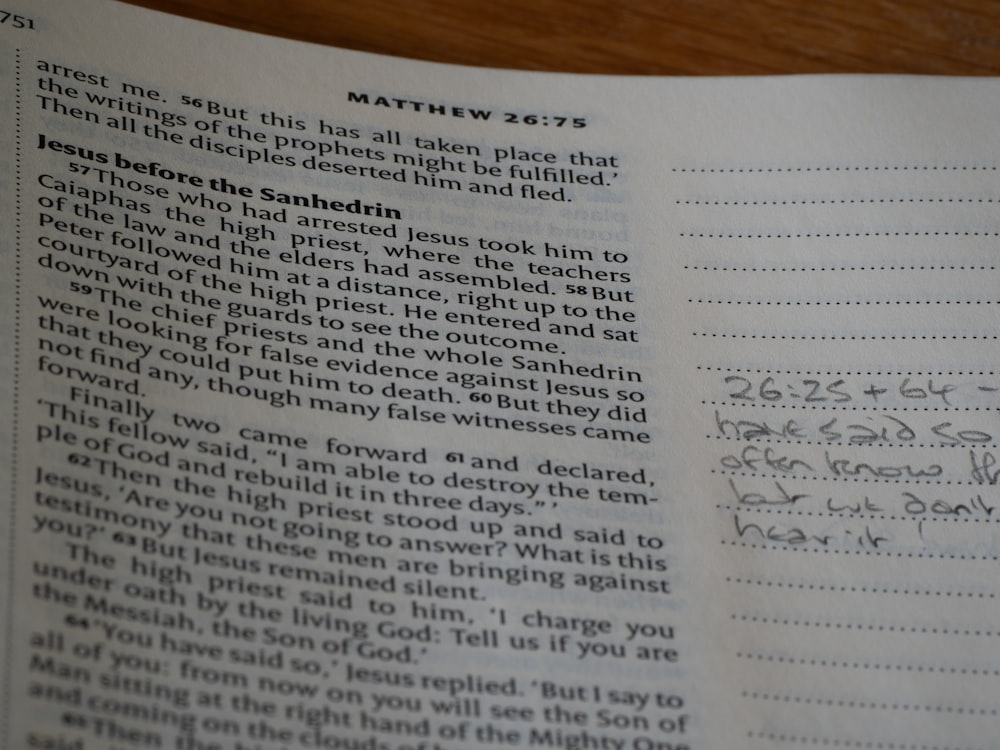 751
MATTHEW 26:75
arrest me. 56 But this has all taken place that
the writings of the prophets might be fulfilled.’
Then all the disciples deserted him and fled.
Jesus before the Sanhedrin
57 Those who had arrested Jesus took him to
Caiaphas the high priest, where the teachers
of the law and the elders had assembled. 58 But
Peter followed him at a distance, right up to the
courtyard of the high priest. He entered and sat
down with the guards to see the outcome.
59 The chief priests and the whole Sanhedrin
were looking for false evidence against Jesus so
that they could put him to death. 60 But they did
not find any, though many false witnesses came
forward.
Finally two came forward 61 and declared,
‘This fellow said, “I am able to destroy the tem-
ple of God and rebuild it in three days.”’
62 Then the high priest stood up and said to
Jesus, ‘Are you not going to answer? What is this
testimony that these men are bringing against
you?’ 63 But Jesus remained silent.
The high priest said to him, ‘I charge you
under oath by the living God: Tell us if you are
the Messiah, the Son of God.’
64 ‘You have said so,’ Jesus replied. ‘But I say to
all of you: from now on you will see the Son of
Man sitting at the right hand of the Mighty One
and coming on the clouds of
65 Then the
said
26:25 + 64 –
have said so
often know
but we don't
hear it!